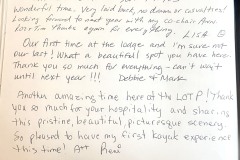 Wonderful time. Very laid back, no drama or casualties!
Looking forward to next year with my co-chair Anne.
Thanks again for everything. Lisa
Our first time at the lodge and I'm sure not
our last! What a beautiful spot you have here.
Thank you so much for everything - can't wait
until next year!!! Debbie & Mark
Another amazing time here at the LOTP! Thank
you so much for your hospitality and sharing
this pristine, beautiful, picturesque scenery.
So pleased to have my first kayak experience
this time! Art